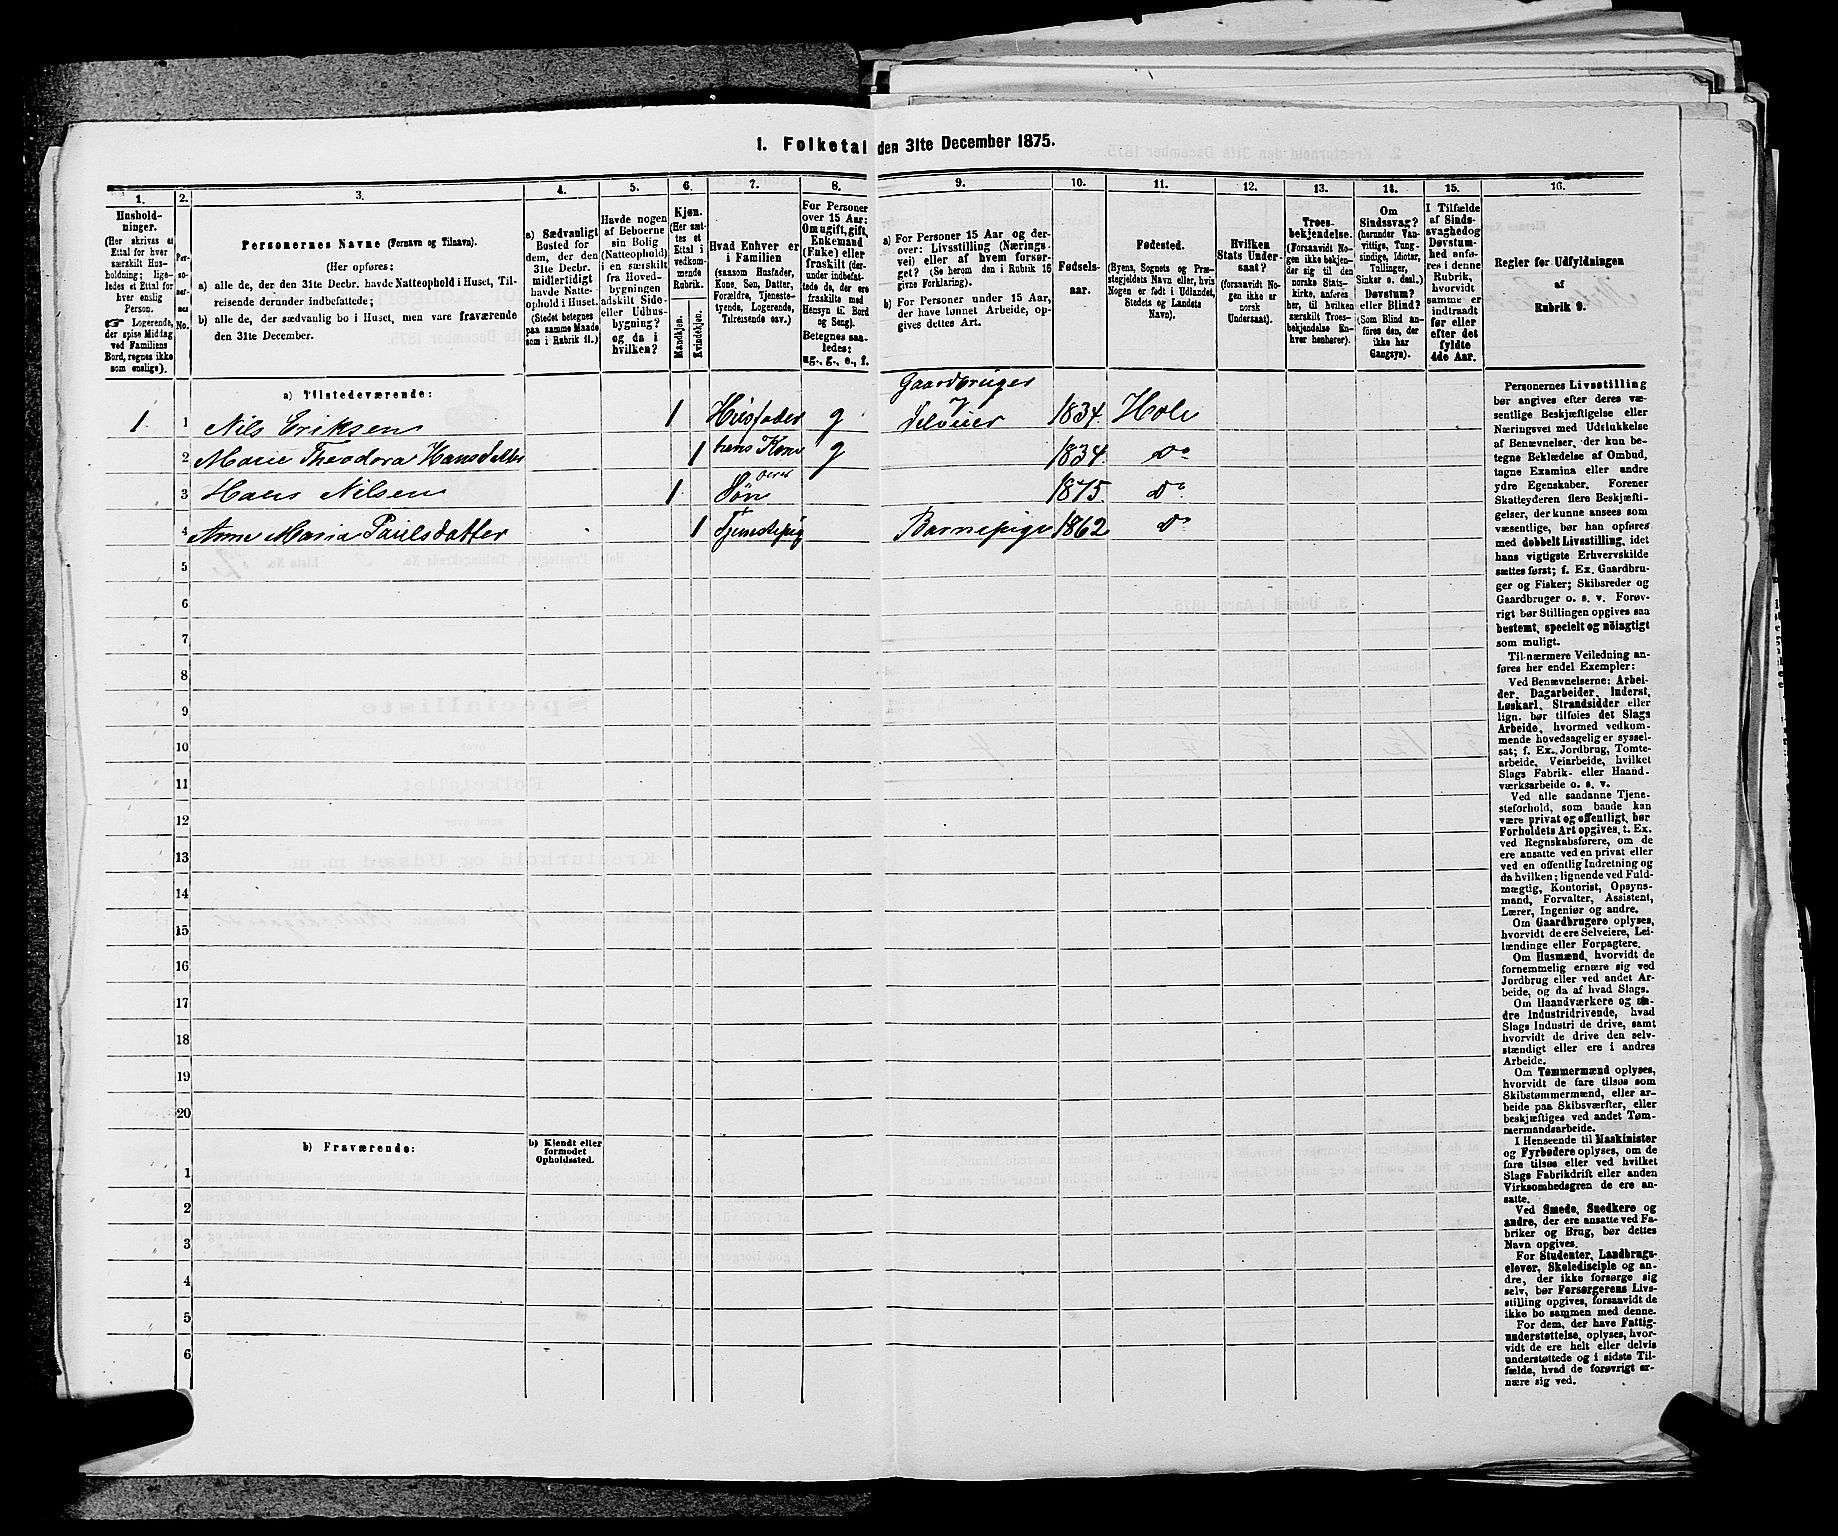 1. Folketal den 31te December 1875.
1.
Hushold-
ninger.
(Her skrives et
Ettal for hver
særskilt Hus-
holdning; lige-
ledes et Ettal for
hver enslig
Person.
☞ Logerende,
der spise Middag
ved Familiens
Bord, regnes ikke
som enslige).
2.
Per-
so-
ner-
nes
No.
3.
Personernes Navne (Fornavn og Tilnavn).
(Her opføres:
a) alle de, der den 31te Decbr. havde Natteophold i Huset, Til-
reisende derunder indbefattede;
b) alle de, der sædvanlig bo i Huset, men vare fraværende
den 31te December.
4.
a) Sædvanligt
Bosted for
dem, der den
31te Decbr.
midlertidigt
havde Natte-
ophold i Huset.
(Stedet betegnes
paa samme Maade
som i Rubrik 11.)
5.
Havde nogen
af Beboerne
sin Bolig
(Natteophold)
i en særskilt
fra Hoved-
bygningen
adskilt Side-
eller Udhus-
bygning?
og da i
hvilken?
6.
Kjøn.
(Her sæt-
tes et
Ettal i
vedkom-
mende
Rubrik.
Mandkjøn.
Kvindekjøn.
7.
Hvad Enhver er
i Familien
(saasom Husfader,
Kone, Søn, Datter,
Forældre, Tjeneste-
tyende, Logerende,
Tilreisende osv.)
8.
For Personer
over 15 Aar:
Om ugift, gift,
Enkemand
(Enke) eller
fraskilt (der-
under indbefat-
tede de, der ere
fraskilte med
Hensyn til Bord
og Seng).
Betegnes saa-
ledes:
ug., g., e., f.
9.
a) For Personer 15 Aar og der-
over: Livsstilling (Nærings-
vei) eller af hvem forsør-
get? (Se herom den i Rubrik 16
givne Forklaring).
b) For Personer under 15 Aar,
der have lønnet Arbeide, op-
gives dettes Art.
10.
Fødsels-
aar.
11.
Fødested.
(Byens, Sognets og Præ-
stegjeldets Navn eller, hvis
Nogen er født i Udlandet,
Stedets og Landets
Navn).
12.
Hvilken
Stats Under-
saat?
(forsaavidt No-
gen ikke er
norsk
Undersaat).
13.
Troes-
bekjendelse.
(Forsaavidt No-
gen ikke bekjen-
der sig til den
norske Stats-
kirke, anføres
her, til hvilken
særskilt Troes-
bekjendelse En-
hver henhører).
14.
Om
Sindssvag?
(herunder Van-
vittige, Tung-
sindige, Idioter,
Tullinger,
Sinker o. desl.)
Døvstum?
eller Blind?
(Som Blind an-
føres den, der
ikke har
Gangsyn).
15.
I Tilfælde
af Sinds-
svaghed og
Døvstum-
hed anfø-
res i denne
Rubrik,
hvorvidt
samme er
indtraadt
før eller
efter det
fyldte
4de Aar.
16.
Regler for Udfyldningen
af
Rubrik 9.
a) Tilstedeværende:
1 1 Nils Eriksen 1 Husfader g Gaardbruger Selveier 1834. Hole
2 Marie Theodora Hansdatter 1 hans Kone g 1834. do
3 Hans Nilsen 1 deres Søn 1875. do
4 Anne Maria Paulsdatter 1 Tjenstepig Barnepige 1862 do
5
6
7
8
9
10
11
12
13
14
15
16
17
18
19
20
b) Fraværende:
b) Kjendt eller
formodet
Opholdssted.
1
2
3
4
5
6
Personernes Livsstilling
bør angives efter deres væ-
sentlige Beskjæftigelse eller
Næringsvei med Udelukkelse
af Benævnelser, der kun be-
tegne Beklædelse af Ombud,
tagne Examina eller andre
ydre Egenskaber. Forener
Skatteyderen flere Beskjæfti-
gelser, der kunne ansees som
væsentlige, bør han opføres
med dobbelt Livsstilling, idet
hans vigtigste Erhvervskilde
sættes først; f. Ex. Gaardbru-
ger og Fisker; Skibsreder og
Gaardbruger o. s. v. Forøv-
rigt bør Stillingen opgives saa
bestemt, specielt og nøiagtigt
som muligt.
Til nærmere Veiledning an-
føres her endel Exempler:
Ved Benævnelserne: Arbei-
der, Dagarbeider, Inderst,
Løskarl, Strandsidder eller
lign. bør tilføies det Slags
Arbeide, hvormed vedkom-
mende hovedsagelig er syssel-
sat; f. Ex. Jordbrug, Tomte-
arbeide, Veiarbeide, hvilket
Slags Fabrik- eller Haand-
værksarbeide o. s. v.
Ved alle saadanne Tjene-
steforhold, som baade kan
være privat og offentligt, bør
Forholdets Art opgives, t. Ex.
ved Regnskabsførere, om de
ere ansatte ved en privat eller
ved en offentlig Indretning og
da hvilken; lignende ved Fuld-
mægtig, Kontorist, Opsyns-
mand, Forvalter, Assistent,
Lærer, Ingeniør og andre.
Om Gaardbrugere oplyses,
hvorvidt de ere Selveiere, Lei-
lændinge eller Forpagtere.
Om Husmænd, hvorvidt de
fornemmelig ernære sig ved
Jordbrug eller ved andet Ar-
beide, og da af hvad Slags.
Om Haandværkere og an-
dre Industridrivende, hvad
Slags Industri de drive, samt
hvorvidt de drive den selv-
stændigt eller ere i andres
Arbeide.
Om Tømmermænd oplyses,
hvorvidt de fare tilsøs som
Skibstømmermænd, eller ar-
beide paa Skibsværfter, eller
beskjæftiges ved andet Tøm-
mermandsarbeide.
I Henseende til Maskinister
og Fyrbødere oplyses, om de
fare tilsøs eller ved hvilket
Slags Fabrikdrift eller anden
Virksomhedsgren de ere an-
satte.
Ved Smede, Snedkere og
andre, der ere ansatte ved Fa-
briker og Brug, bør dettes
Navn opgives.
For Studenter, Landbrugs-
elever, Skoledisciple og an-
dre, der ikke forsørge sig
selv, bør Forsørgerens Livs-
stilling opgives, forsaavidt de
ikke bo sammen med denne.
For dem, der have Fattig-
understøttelse, oplyses, hvor-
vidt de ere helt eller delvis
understøttede og i sidste Til-
fælde, hvad de forøvrigt er-
nære sig ved.